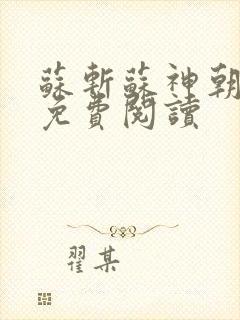 蘇斬蘇神朝
免費閱讀
翟某